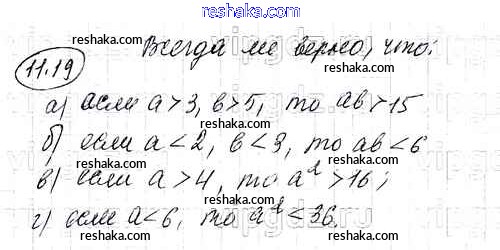 reshaka.com
Всегда ли верно, что:
11.19
reshaka.com
reshaka.com
а) если a>3, в>5, то aв>15
reshaka.com
reshaka.com
б) если a<2, в<3, то aв<6
reshaka.com
reshaka.com
в) если a>4, то a²>16;
reshaka.com
reshaka.com
г) если a<6, то a²<36.
reshaka.com
reshaka.com